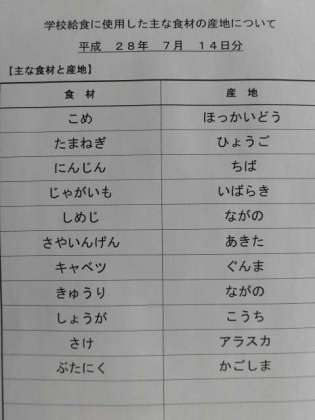 学校給食に使用した主な食材の産地について
平成 28年 7月 14日分
【主な食材と産地】
食 材 産 地
こめ ほっかいどう
たまねぎ ひょうご
にんじん ちば
じゃがいも いばらき
しめじ ながの
さやいんげん あきた
キャベツ ぐんま
きゅうり ながの
しょうが こうち
さけ アラスカ
ぶたにく かごしま